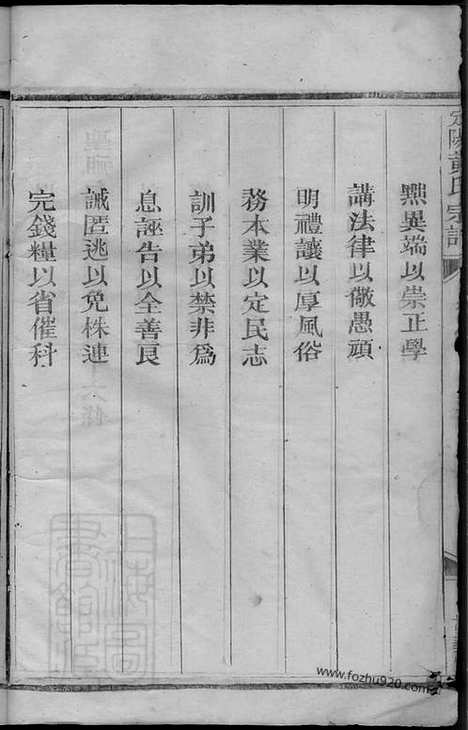 定陽黃氏宗譜
黜異端以崇正學
講法律以儆愚頑
明禮讓以厚風俗
務本業以定民志
訓子弟以禁非爲
息誣告以全善良
誡匿逃以免株連
完錢糧以省催科
www.fozhu920.com